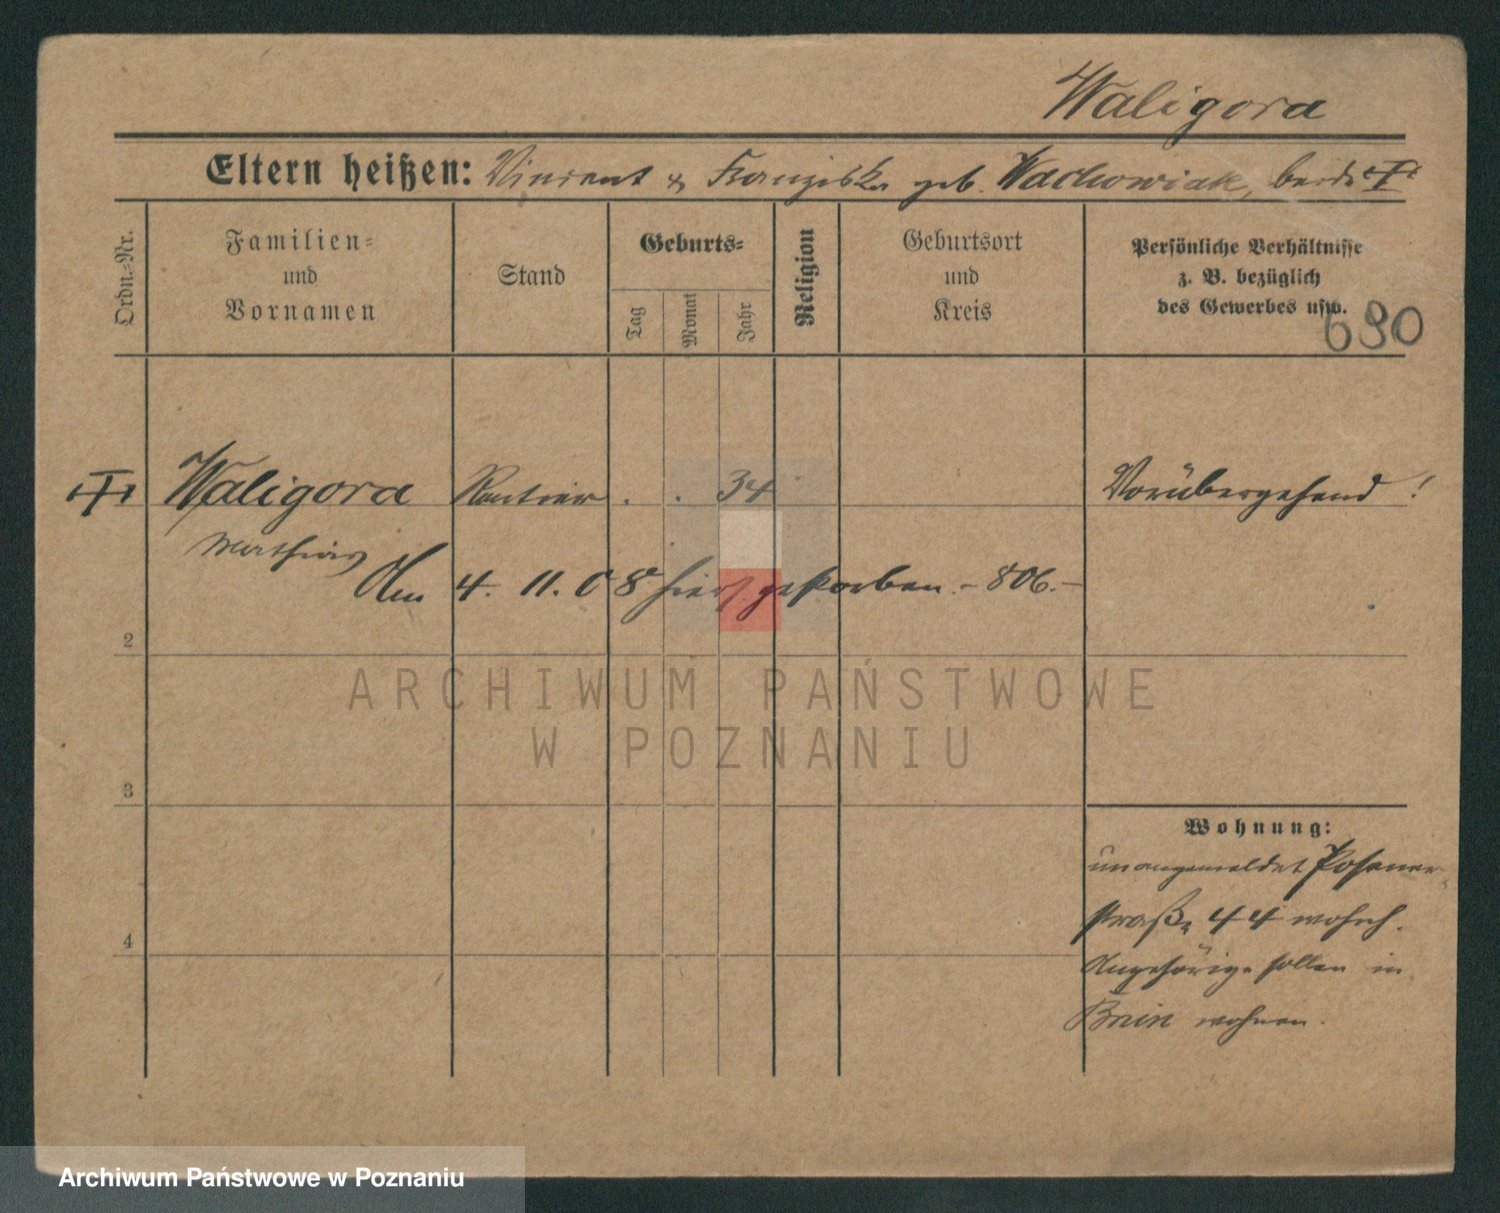 Waligora
Eltern heißen: Vincent & Franziska geb. Wachowiak, beide
Ordn.-Nr.
Familien-
und
Vornamen
Stand
Geburts-
Tag
Monat
Jahr
Religion
Geburtsort
und
Kreis
Persönliche Verhältnisse
z. B. bezüglich
des Gewerbes usw.
680
Waligora Rentier . . 34 Vorübergehend !
Mathias
Am 4. 11. 08 hier gestorben. - 806. -
2
3
4
Wohnung:
unangemeldet Posener-
straße 44 wohnh.
Angehörige sollen in
Bnin wohnen.
ARCHIWUM PAŃSTWOWE
W POZNANIU
Archiwum Państwowe w Poznaniu